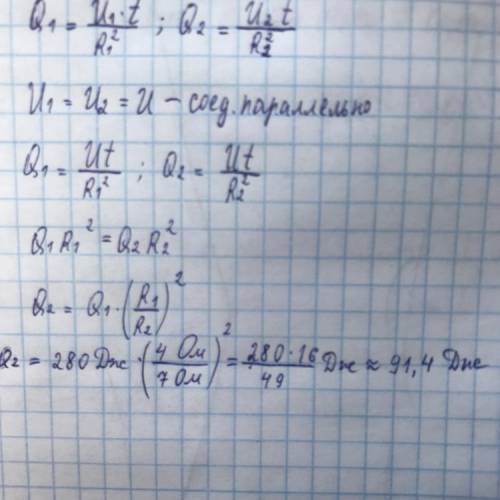 Q₁ = U₁·t / R₁² ; Q₂ = U₂ t / R₂²
U₁ = U₂ = U – соед. параллельно
Q₁ = Ut / R₁² ; Q₂ = Ut / R₂²
Q₁ R₁² = Q₂ R₂²
Q₂ = Q₁·(R₁/R₂)²
Q₂ = 280 Дж·(4 Ом / 7 Ом)² = 280·16 / 49 Дж ≈ 91,4 Дж